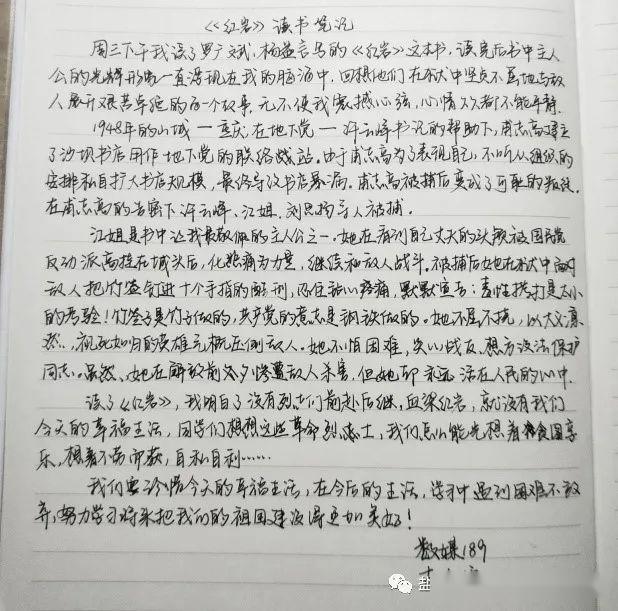 《红岩》读书笔记
周三下午我读了罗广斌,杨益言写的《红岩》这本书,读完后书中主人
公的光辉形象一直浮现在我的脑海中,回想他们在狱中坚贞不屈地与敌
人展开艰苦卓绝的每一个故事,无不使我震撼心弦,心情久久都不能平静.
1948年的山城—重庆,在地下党—许云峰书记的帮助下,甫志高建立
了沙坝书店用作地下党的联络战站.由于甫志高为了表现自己,不听从组织的
安排私自扩大书店规模,最终导致书店暴漏.甫志高被捕后变成了可耻的叛徒.
在甫志高的告密下许云峰、江姐、刘思扬等人被捕.
江姐是书中让我最敬佩的主人公之一.她在看到自己丈夫的头颅被国民党
反动派高挂在城头后,化悲痛为力量,继续和敌人战斗.被捕后她在狱中面对
敌人把竹签钉进十个手指的酷刑,忍住钻心疼痛,默默宣告:毒性拷打是太小
的考验!竹签子是竹子做的,共产党的意志是钢铁做的.她不屈不挠,以大义凛
然..,视死如归的英雄气概压倒敌人.她不怕困难,关心战友,想方设法保护
同志.虽然、她在解放前夕惨遭敌人杀害,但她却永远活在人民的心中.
读了《红岩》,我明白了没有烈士们前赴后继,血染红岩,就没有我们
今天的幸福生活,同学们想想这些革命烈士,我们怎么能光想着贪图享
乐,想着不劳而获,自私自利……
我们要珍惜今天的幸福生活,在今后的生活,学习中遇到困难不放
弃,努力学习将来把我们的祖国建设得更加美好!
数媒189
盐